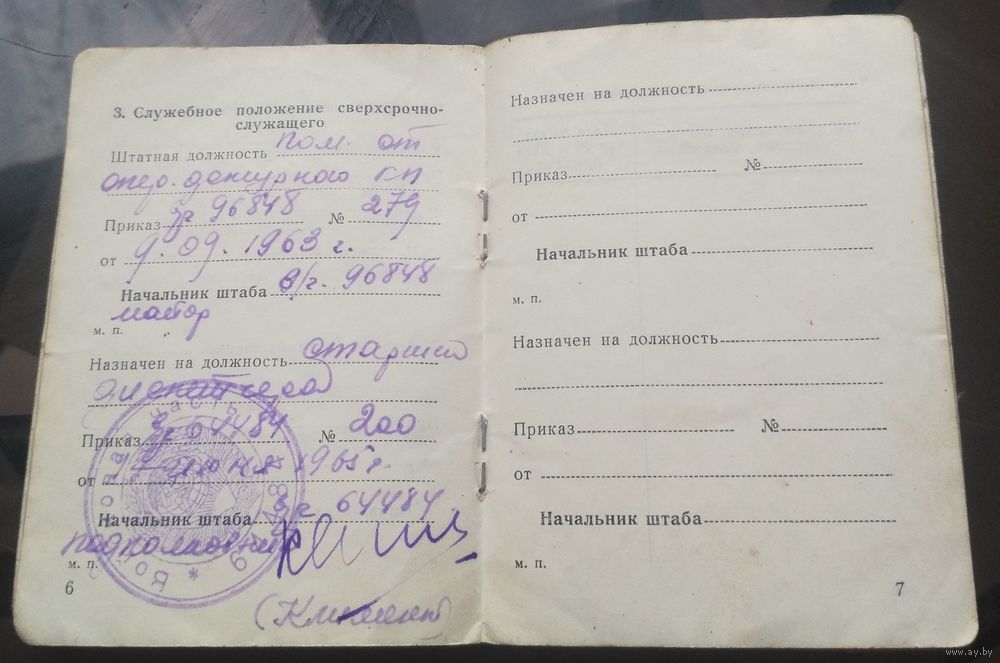 3. Служебное положение сверхсрочно-
служащего
Штатная должность пом. от
опер. дежурного КП
Приказ в/ч 96848 № 279
от 9.09.1963 г.
Начальник штаба в/ч. 96848
майор
м. п.
Назначен на должность старшего
Приказ в/ч 64484 № 200
от июня 1965 г.
Начальник штаба в/ч 64484
подполковник
м. п.
6
Назначен на должность
Приказ №
от
Начальник штаба
м. п.
Назначен на должность
Приказ №
от
Начальник штаба
м. п.
7
www.ay.by